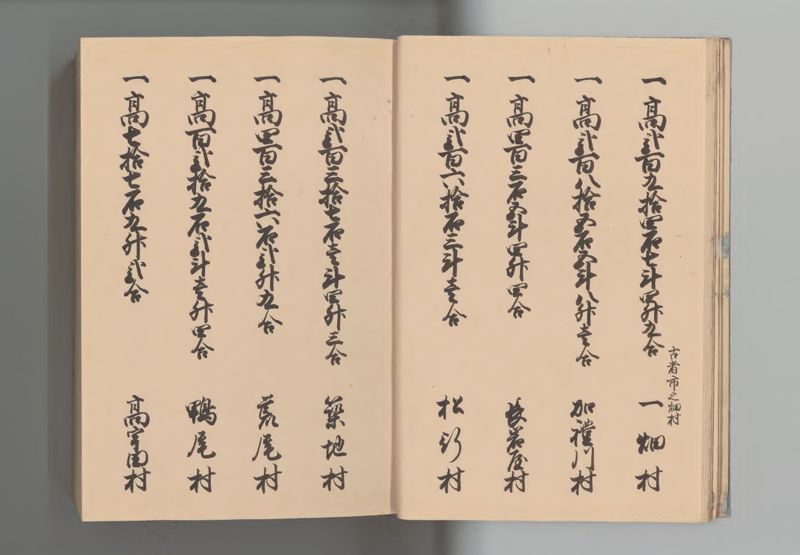 一高弐百九拾四石七斗四升九合
古者市之畑村
一畑村
一高弐百八拾五石五斗八升壱合
加禮川村
一高四百三石五斗四升四合
長若屋村
一高弐百六拾石三斗壱合
松行村
一高弐百三拾七石壱斗四升三合
築地村
一高四百三拾六石弐升九合
荒尾村
一高百弐拾五石弐斗壱升四合
鴨尾村
一高七拾七石九升弐合
高宇田村